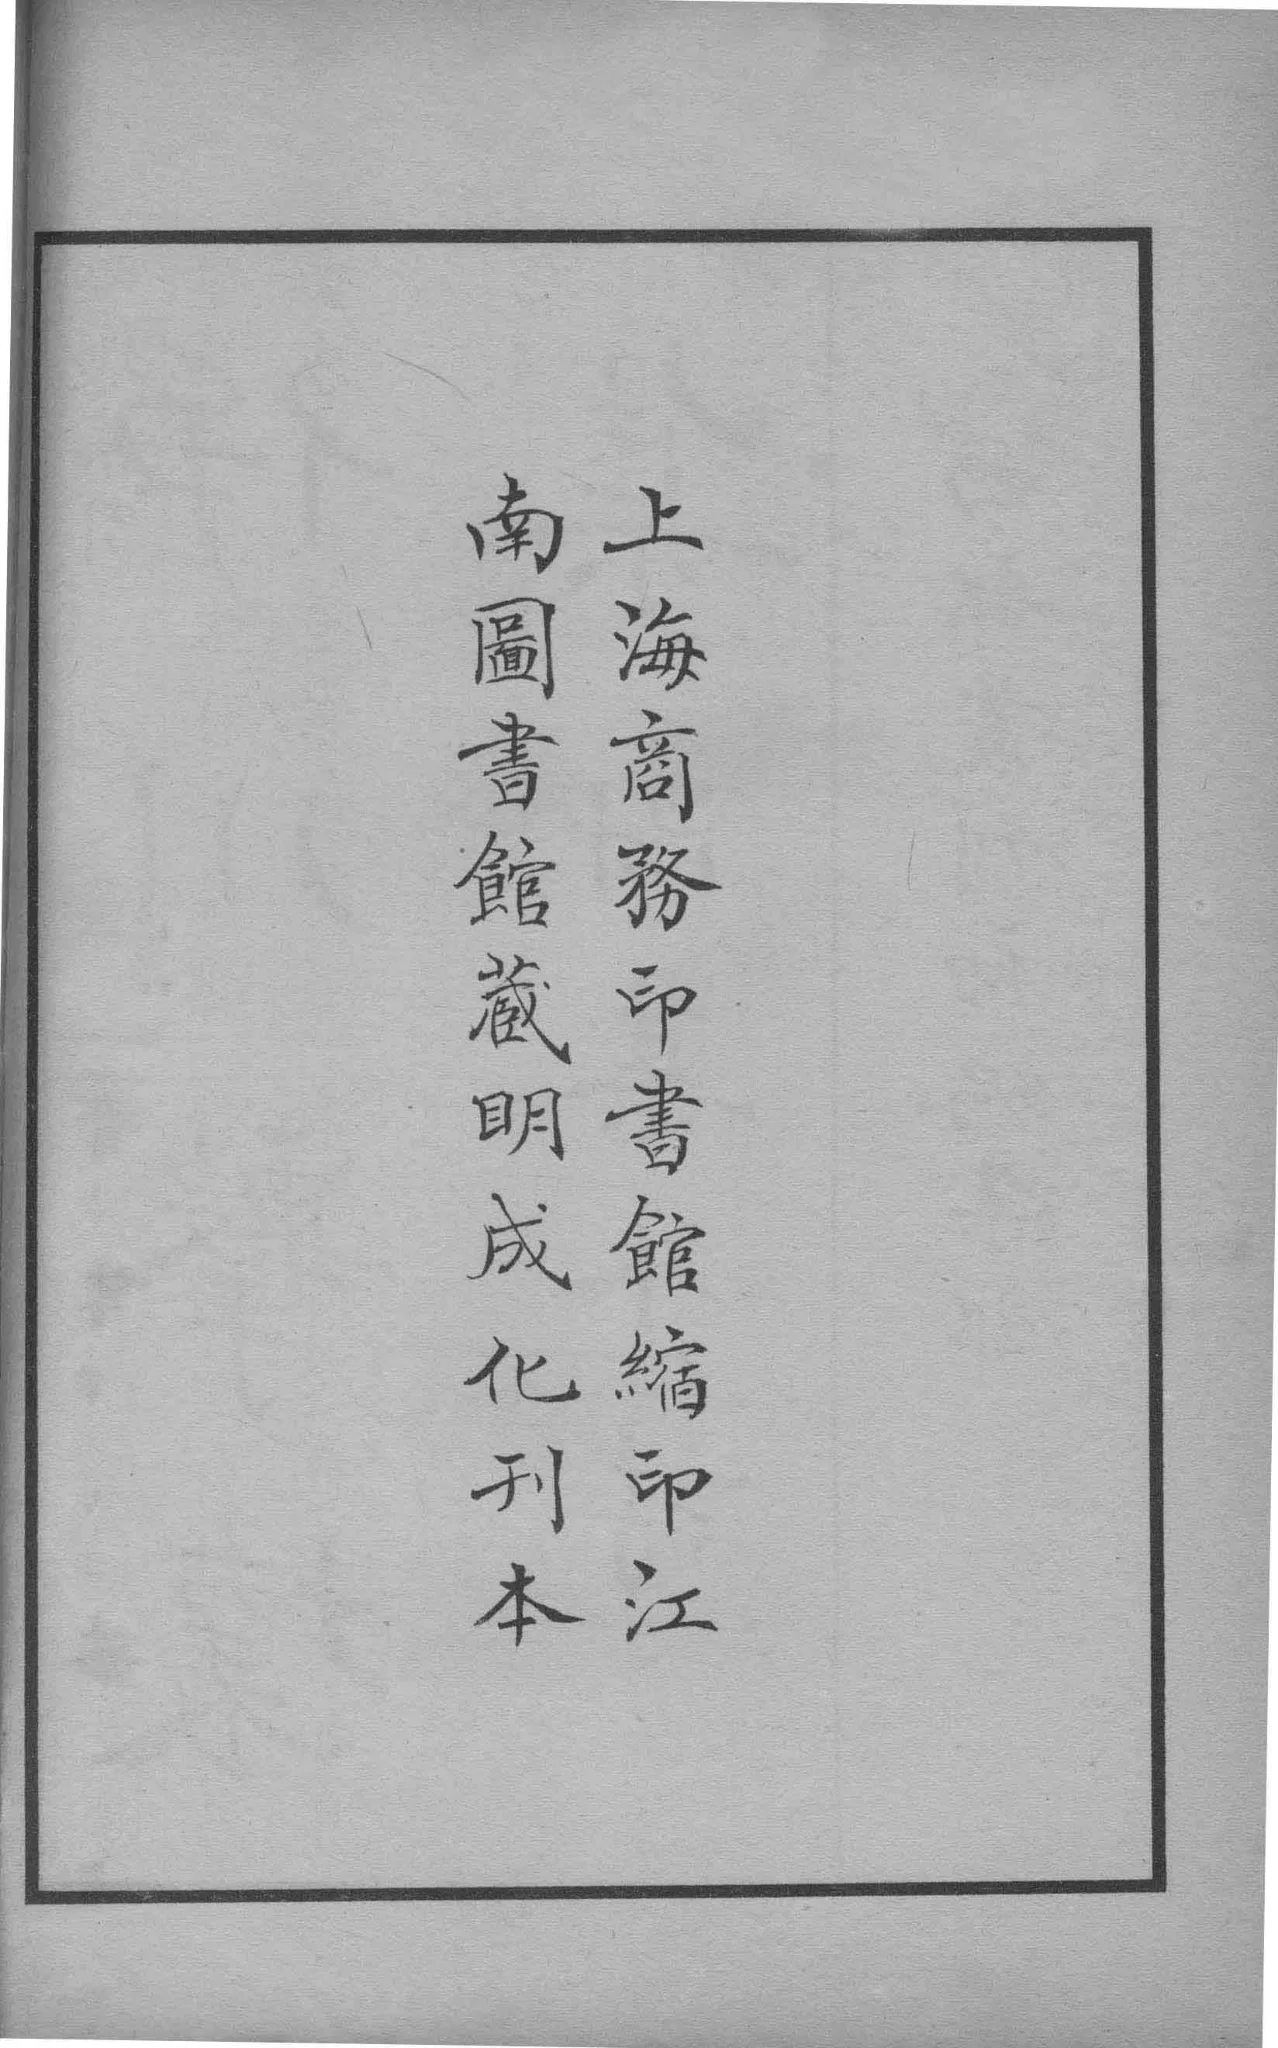 上海商務印書館縮印江
南圖書館蔵明成化刊本